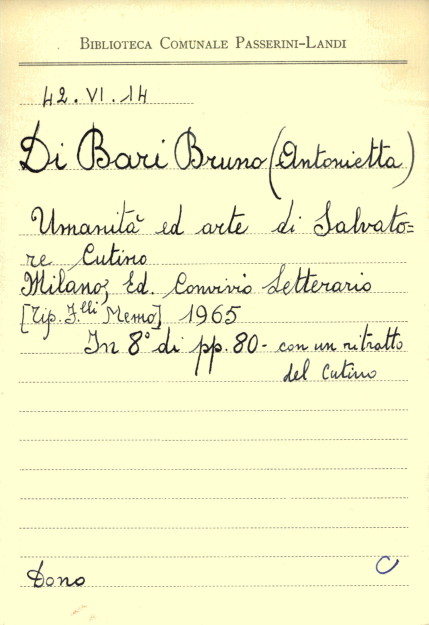 BIBLIOTECA COMUNALE PASSERINI-LANDI
42.VI.14
Di Bari Bruno (Antonietta)
Umanità ed arte di Salvato=
re Cutino
Milano, Ed. Convivio Letterario
[Tip. F.lli Memo] 1965
In 8° di pp. 80 - con un ritratto
del Cutino
Dono
C